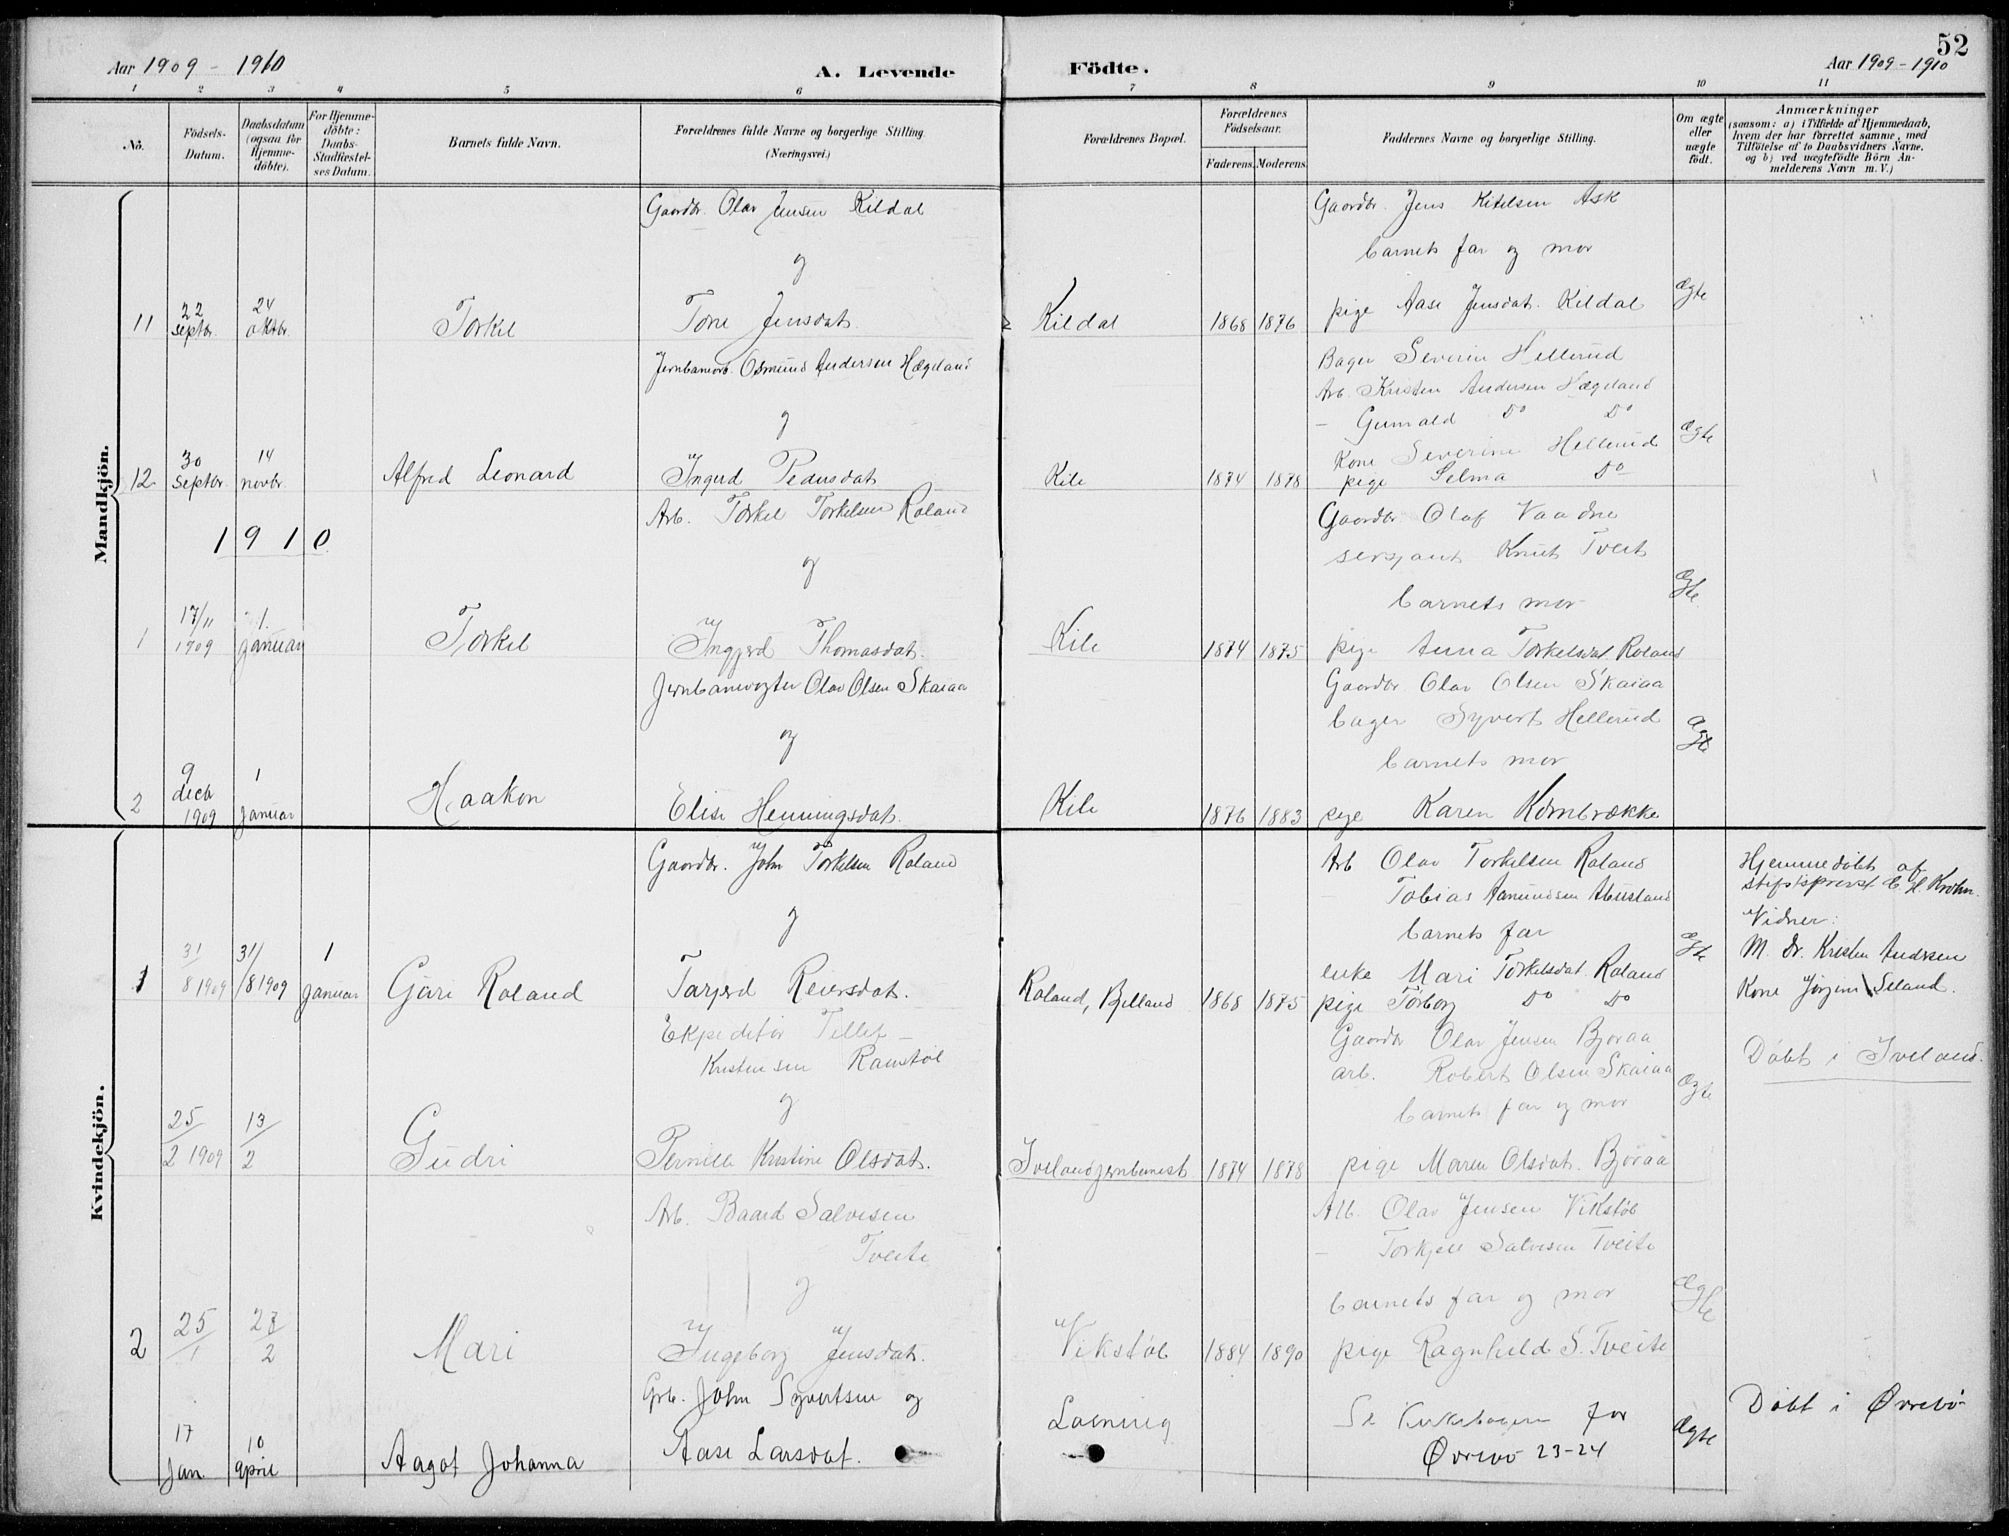 52
Aar 1909 - 1910 A. Levende Födte. Aar 1909 - 1910
1 2 3 4 5 6 7 8 9 10 11
No.
Födsels-
Datum.
Daabsdatum
(ogsaa for
Hjemme-
döbte).
For Hjemme-
döbte:
Daabs-
Stadfæstel-
ses Datum.
Barnets fulde Navn.
Forældrenes fulde Navne og borgerlige Stilling
(Næringsvei.)
Forældrenes Bopæl.
Forældrenes
Födselsaar.
Faderens. Moderens.
Faddernes Navne og borgerlige Stilling.
Om ægte
eller
uægte
født.
Anmærkninger
(saasom: a) i Tilfælde af Hjemmedaab,
hvem der har forrettet samme, med
Tilföielse af to Daabsvidners Navne,
og b) ved uægtefödte Börn An-
melderens Navn m. V.)
Mandkjön.
Gaardbr. Olav Jensen Kildal
og
11 22 septbr. 24 oktbr. Torkel Tone Jensdat. Kildal 1868 1876
Gaardbr. Jens Ketilsen Ask
barnets far og mor
pige Aase Jensdat. Kildal
Ægte
Jernbanearb. Osmund Andersen Hægeland
og
12 30 septbr. 14 novbr. Alfred Leonard Ingerd Pedersdat. Kile 1874 1878
Bager Severin Hellerud
Arb. Kristen Andersen Hægeland
- Gunvald Do Do
Kone Severine Hellerud
pige Selma Do
Ægte
1910
Arb. Torkel Torkelsen Roland
og
1 17/11 1909 1. januar Torkel Ingjerd Thomasdat. Kile 1874 1875
Gaardbr. Olaf Vaadne
sersjant Knut Tveit
barnets mor
pige Anna Torkelsdat. Roland
Ægte
Jernbanevogter Olav Olsen Skaiaa
og
2 9 decbr 1909 1 januar Haakon Elise Henningsdat. Kile 1876 1883
Gaardbr. Olav Olsen Skaiaa
bager Syvert Hellerud
barnets mor
pige Karen Kornbrække
Ægte
Kvindekjön.
Gaardbr. John Torkelsen Roland
og
1 31/8 1909 31/8 1909 1 januar Guri Roland Tarjerd Reiersdat. Roland, Bjelland 1868 1875
Arb Olav Torkelsen Roland
- Tobias Aamundsen Abusland
barnets far
enke Mari Torkelsdat. Roland
pige Torborg Do Do
Ægte
Hjemmedøbt af
stiftsprovst E. H. Krohn.
Vidner:
M. Dr. Kristen Andersen
Kone Jørgine Seland.
Ekpeditør Tellef
Kristensen Ramstøl
og
25/2 1909 13/2 Gudri Pernille Kristine Olsdat. Ivelandjernbanest 1874 1878
Gaardbr Olav Jensen Bjoraa
arb. Robert Olsen Skaiaa
barnets far og mor
pige Maren Olsdat. Bjoraa
Ægte
Døbt i Iveland.
Arb. Baard Salvesen
Tveite
og
2 25/1 27/2 Mari Ingeborg Jensdat. Vikstøl 1884 1890
Arb. Olav Jensen Vikstøl
- Torkjell Salvesen Tveite
barnets far og mor
pige Ragnhild S. Tveite
Ægte
Grb. John Syvertsen og
17 Jan. 10 april Aagot Johanna Aase Larsdat.
Se Kirkebogen for
Øvrebø 23-24
Ægte
Døbt i Øvrebø